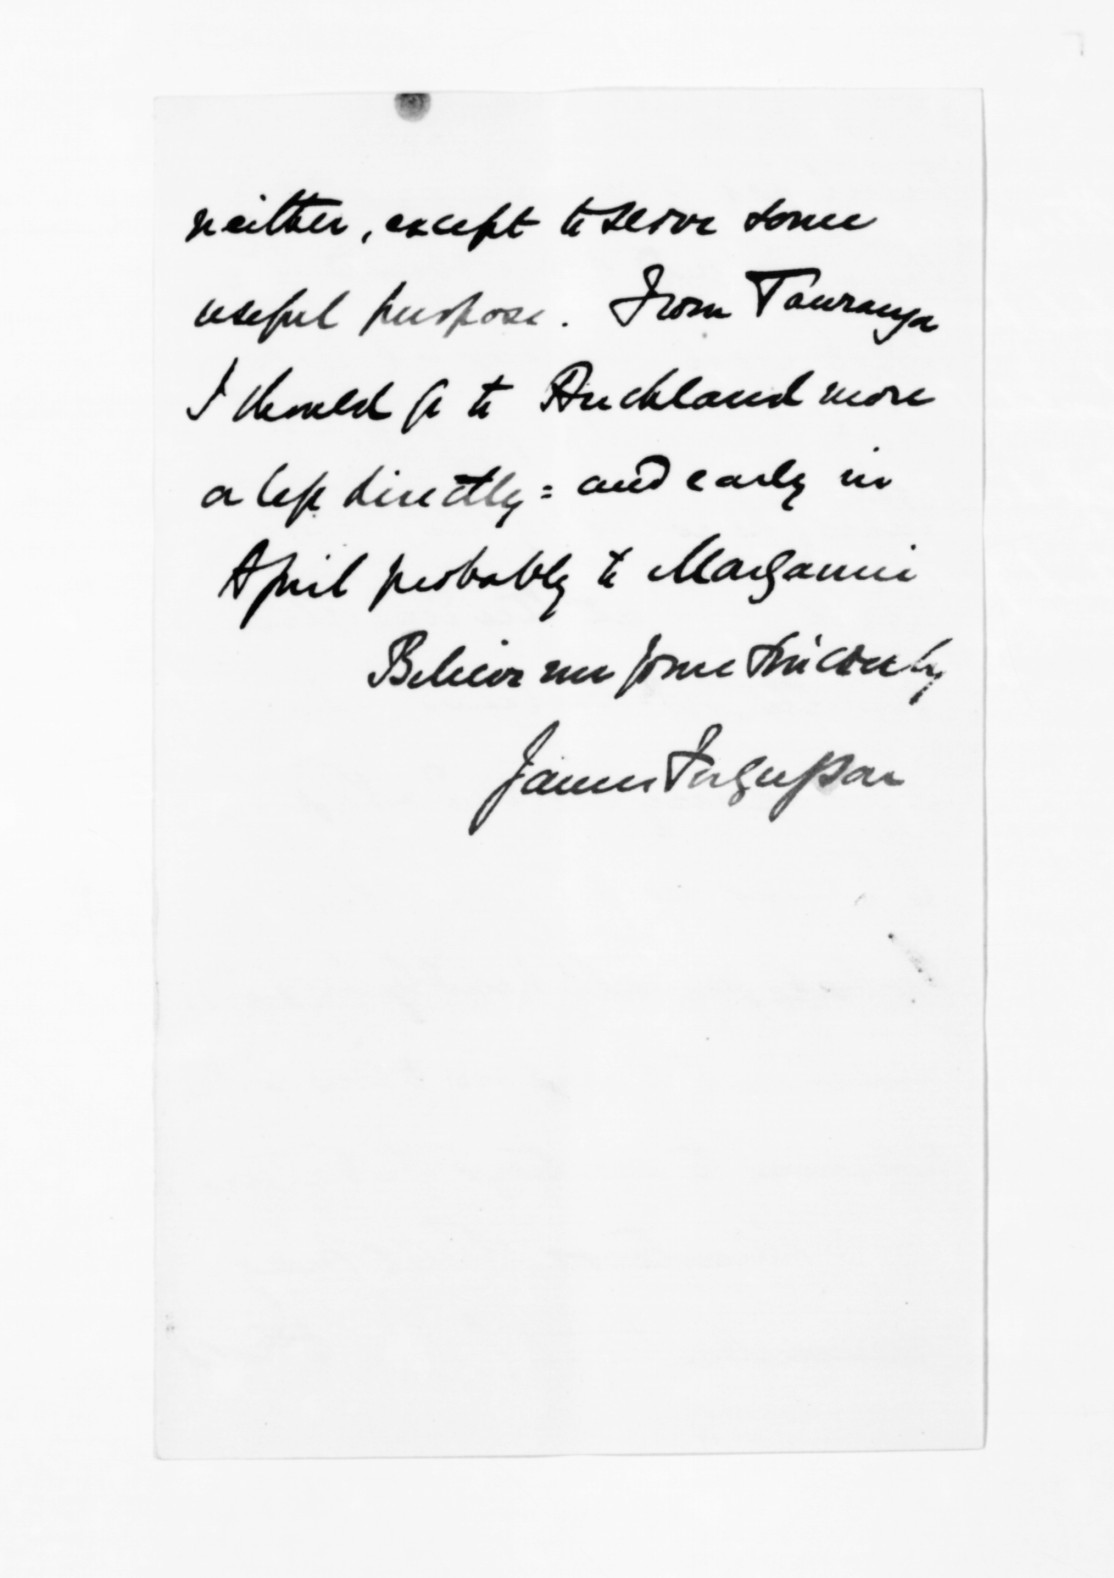 neither, except to serve some
useful purpose. From Tauranga
I should go to Auckland more
or less directly = and early in
April probably to Manganui
Believe me yours sincerely
James Fergusson